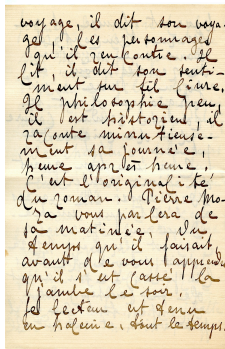 voyage, il dit son voya-
ge, les personnages
qu'il rencontre. Il
lit, il dit son senti-
ment sur tel livre,
Il philosophie peu,
il est historien, il
raconte minutieuse-
ment sa journée,
heure après heure.
C'est l'originalité
du roman. Pierre Mo-
ra vous parlera de
sa matinée, du
temps qu'il faisait
avant de vous apprendre
qu'il s'est cassé la
jambe le soir.
Le lecteur est tenu
en haleine, tout le temps.